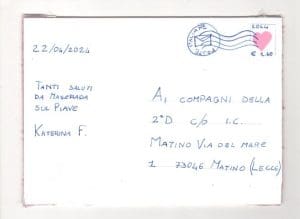 22/04/2024
2024
€ 2.60
TANTI SALUTI
DA MASERADA
SUL PIAVE
KATERINA F.
AI COMPAGNI DELLA
2°D C/O I.C.
MATINO VIA DEL MARE
1 73046 MATINO (LECCE)